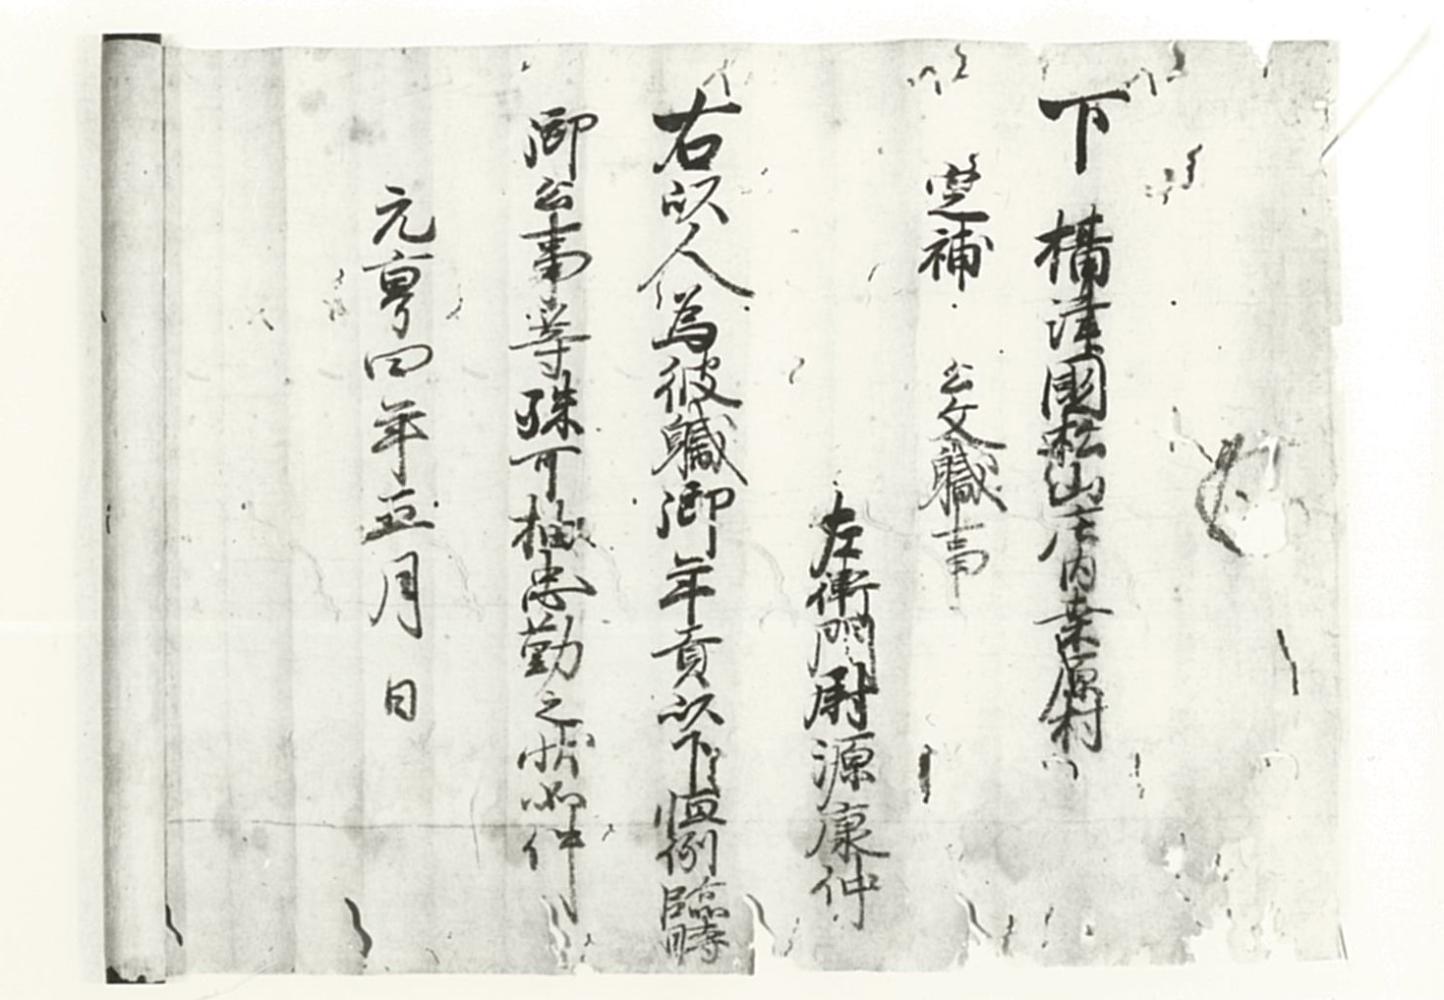 下　摂津国松山庄内桑原村
定補　公文職事
左衛門尉源康仲
右以人為彼職御年貢以下恒例臨時
御公事等殊可抽忠勤之状如件
元亨四年五月　日